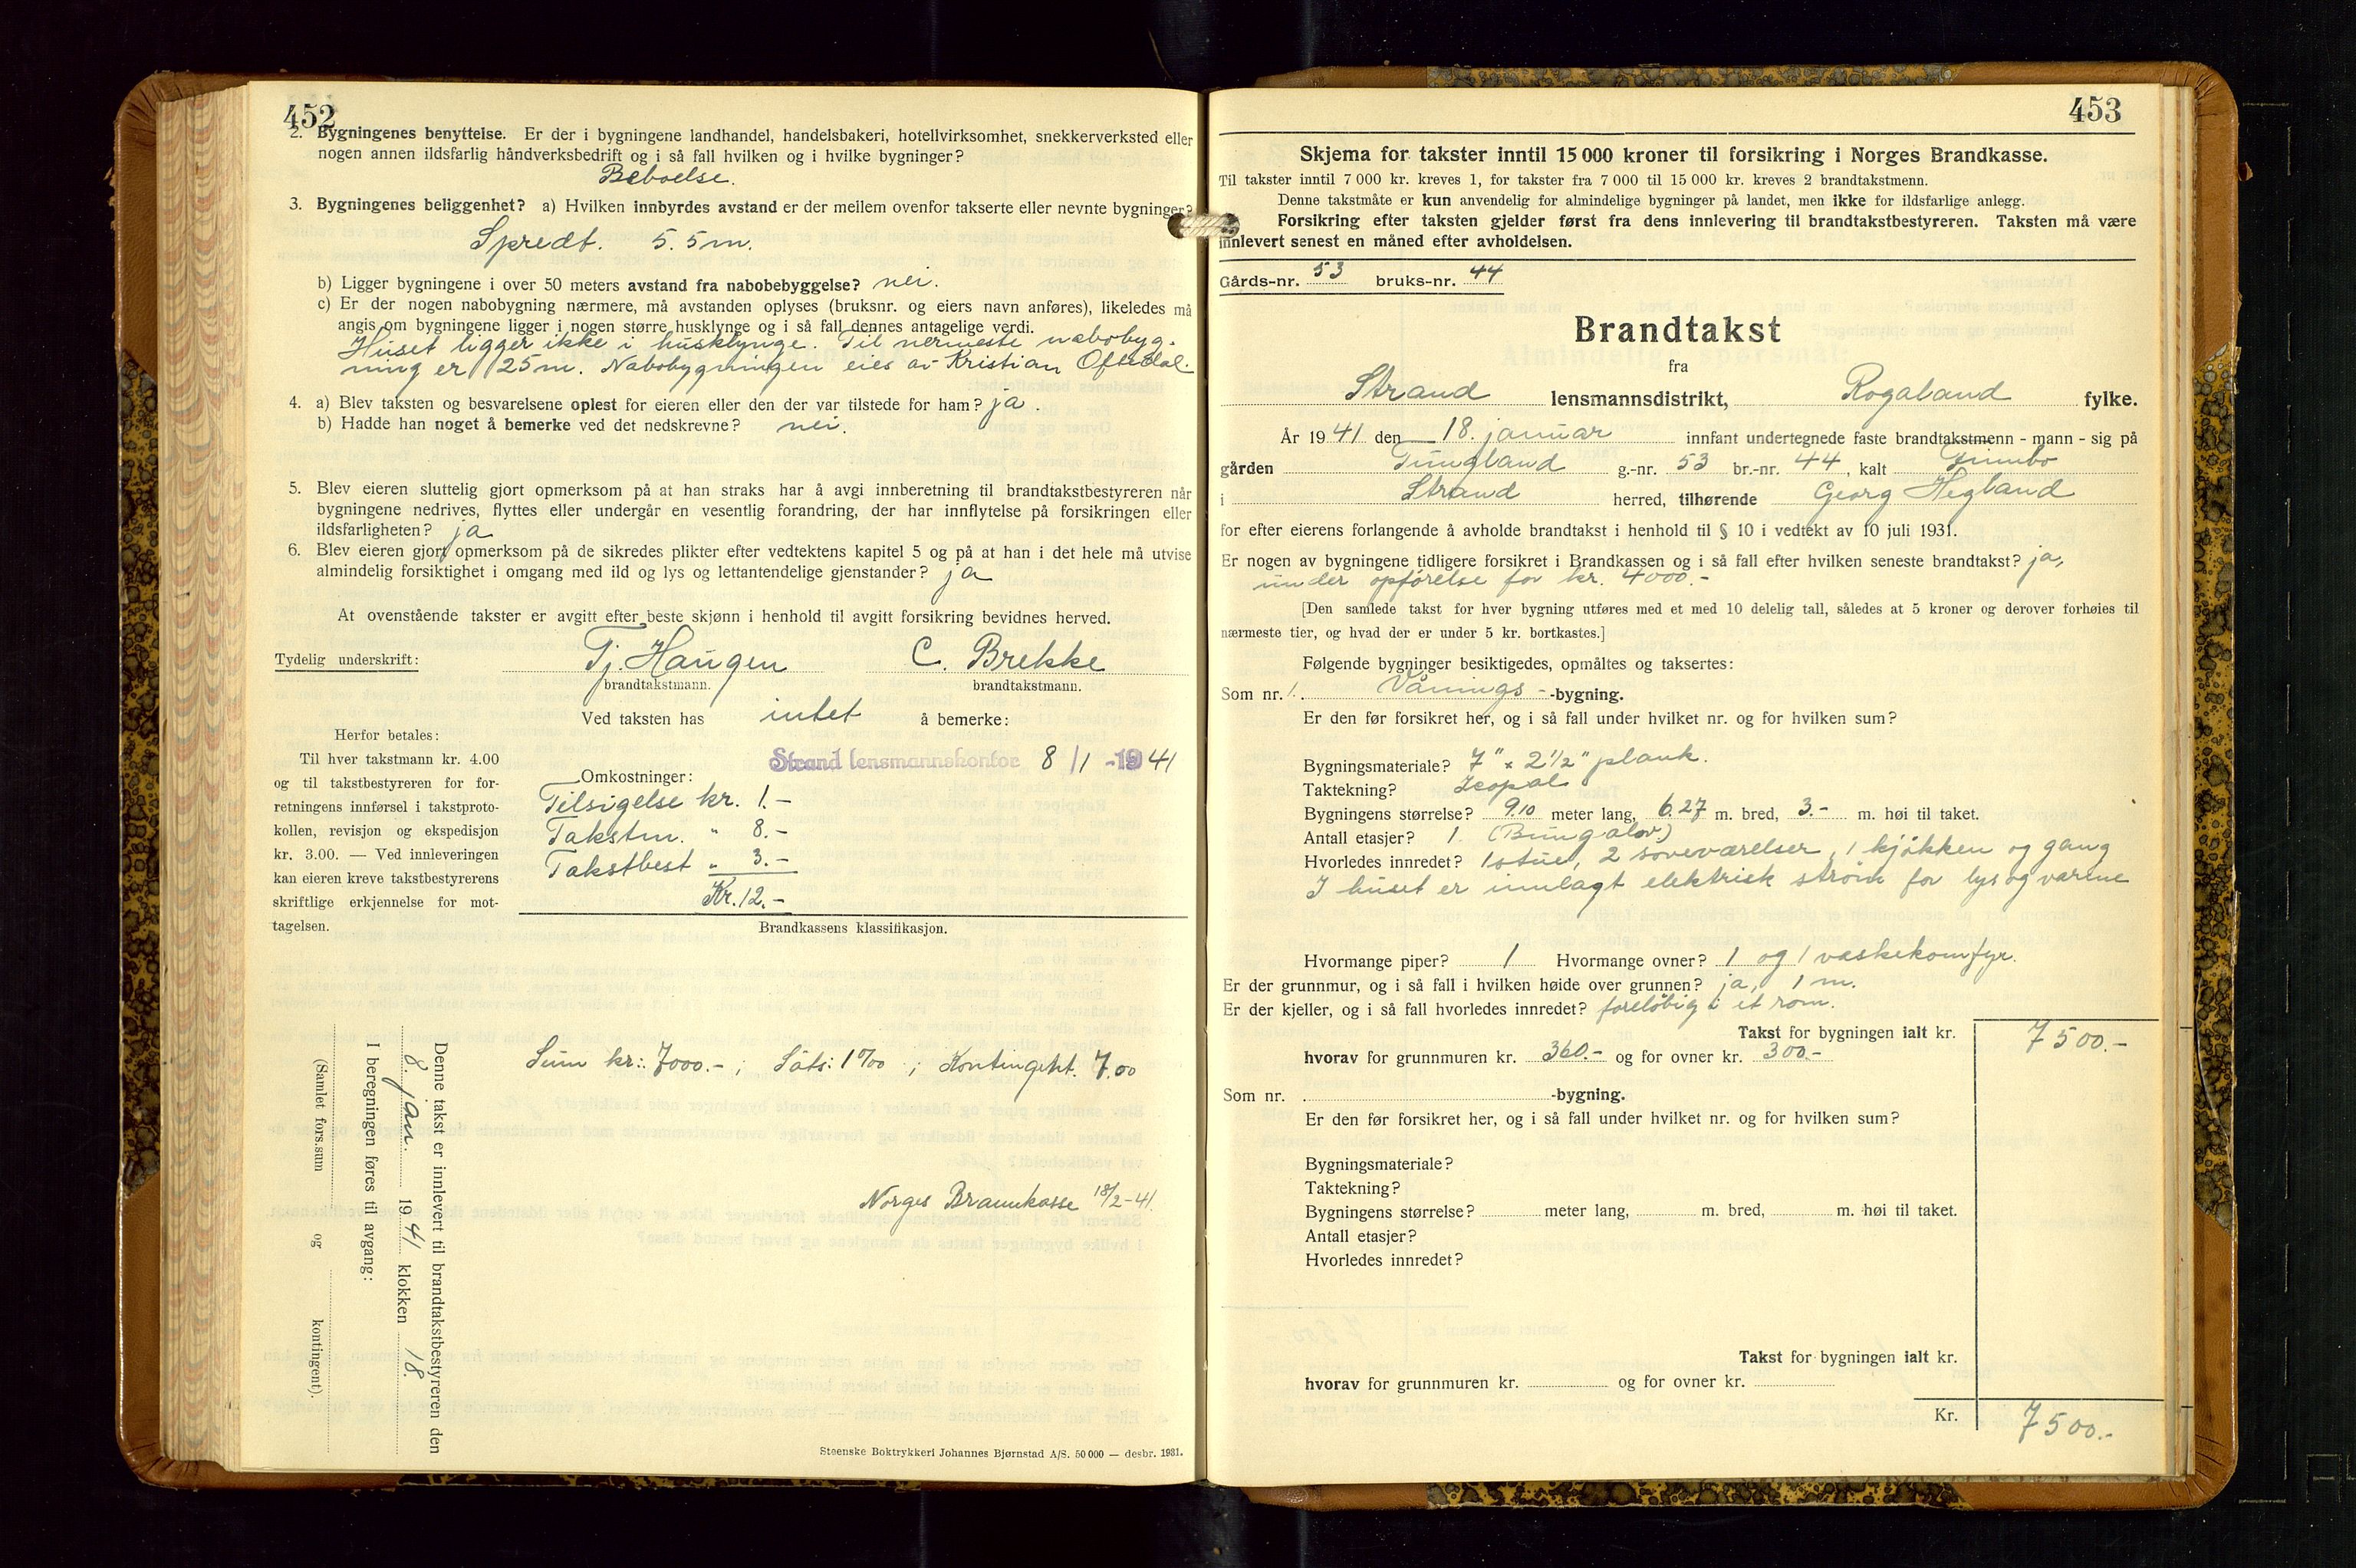 452
2. Bygningenes benyttelse. Er der i bygningene landhandel, handelsbakeri, hotellvirksomhet, snekkerverksted eller
nogen annen ildsfarlig håndverksbedrift og i så fall hvilken og i hvilke bygninger?
Beboelse.
3. Bygningenes beliggenhet? a) Hvilken innbyrdes avstand er der mellem ovenfor takserte eller nevnte bygninger?
Spredt. 5.5 m.
b) Ligger bygningene i over 50 meters avstand fra nabobebyggelse? nei.
c) Er der nogen nabobygning nærmere, må avstanden oplyses (bruksnr. og eiers navn anføres), likeledes må
angis om bygningene ligger i nogen større husklynge og i så fall dennes antagelige verdi.
Huset ligger ikke i husklynge. Til nermeste nabobyg-
ning er 25 m. Nabobygningen eies av Kristian Oftedal.
4. a) Blev taksten og besvarelsene oplest for eieren eller den der var tilstede for ham? ja.
b) Hadde han noget å bemerke ved det nedskrevne? nei.
5. Blev eieren sluttelig gjort opmerksom på at han straks har å avgi innberetning til brandtakstbestyreren når
bygningene nedrives, flyttes eller undergår en vesentlig forandring, der har innflytelse på forsikringen eller
ildsfarligheten? ja
6. Blev eieren gjort opmerksom på de sikredes plikter efter vedtektens kapitel 5 og på at han i det hele må utvise
almindelig forsiktighet i omgang med ild og lys og lettantendelige gjenstander? ja
At ovenstående takster er avgitt efter beste skjønn i henhold til avgitt forsikring bevidnes herved.
Tydelig underskrift: Tj. Haugen C. Brekke
brandtakstmann. brandtakstmann.
Ved taksten has intet å bemerke:
Herfor betales:
Til hver takstmann kr. 4.00
og til takstbestyreren for for-
retningens innførsel i takstproto-
kollen, revisjon og ekspedisjon
kr. 3.00. — Ved innleveringen
kan eieren kreve takstbestyrerens
skriftlige erkjennelse for mot-
tagelsen.
Strand lensmannskontor 8/1 -1941
Omkostninger:
Tilsigelse kr. 1.-
Takstm. " 8.-
Takstbest " 3.-
Kr. 12.-
Brandkassens klassifikasjon.
Sum kr.: 7000.- ; Sats: 1 ‰ ; Kontingent. 7.00
Norges Brannkasse 18/2-41.
Denne takst er innlevert til brandtakstbestyreren den
8. jan. 1941 klokken 18.
I beregningen føres til avgang:
(Samlet fors.sum og kontingent).
Steenske Boktrykkeri Johannes Bjørnstad A/S. 50 000 — desbr. 1931.
453
Skjema for takster inntil 15 000 kroner til forsikring i Norges Brandkasse.
Til takster inntil 7 000 kr. kreves 1, for takster fra 7 000 til 15 000 kr. kreves 2 brandtakstmenn.
Denne takstmåte er kun anvendelig for almindelige bygninger på landet, men ikke for ildsfarlige anlegg.
Forsikring efter taksten gjelder først fra dens innlevering til brandtakstbestyreren. Taksten må være
innlevert senest en måned efter avholdelsen.
Gårds-nr. 53 bruks-nr. 44
Brandtakst
fra
Strand lensmannsdistrikt, Rogaland fylke.
År 1941 den 18. januar innfant undertegnede faste brandtakstmenn - mann - sig på
gården Tungland g.-nr. 53 br.-nr. 44, kalt
i Strand herred, tilhørende Georg Hegland
for efter eierens forlangende å avholde brandtakst i henhold til § 10 i vedtekt av 10 juli 1931.
Er nogen av bygningene tidligere forsikret i Brandkassen og i så fall efter hvilken seneste brandtakst? ja,
under opførelse for kr. 4000.-
[Den samlede takst for hver bygning utføres med et med 10 delelig tall, således at 5 kroner og derover forhøies til
nærmeste tier, og hvad der er under 5 kr. bortkastes.]
Følgende bygninger besiktigedes, opmåltes og taksertes:
Som nr. 1. Vånings--bygning.
Er den før forsikret her, og i så fall under hvilket nr. og for hvilken sum?
Bygningsmateriale? 7" x 2 1/2" plank.
Taktekning? Icopal
Bygningens størrelse? 9.10 meter lang, 6.27 m. bred, 3.- m. høi til taket.
Antall etasjer? 1. (Bungalov)
Hvorledes innredet? 1 stue, 2 soveværelser, 1 kjøkken og gang
I huset er innlagt elektrisk strøm for lys og varme
Hvormange piper? 1 Hvormange ovner? 1 og 1 vaskekomfyr.
Er der grunnmur, og i så fall i hvilken høide over grunnen? ja, 1 m.
Er der kjeller, og i så fall hvorledes innredet? foreløbig i et rom.
Takst for bygningen ialt kr. 7500.-
hvorav for grunnmuren kr. 360.- og for ovner kr. 300.-
Som nr. -bygning.
Er den før forsikret her, og i så fall under hvilket nr. og for hvilken sum?
Bygningsmateriale?
Taktekning?
Bygningens størrelse? meter lang, m. bred, m. høi til taket.
Antall etasjer?
Hvorledes innredet?
Takst for bygningen ialt kr.
hvorav for grunnmuren kr. og for ovner kr.
Kr. 7500.-